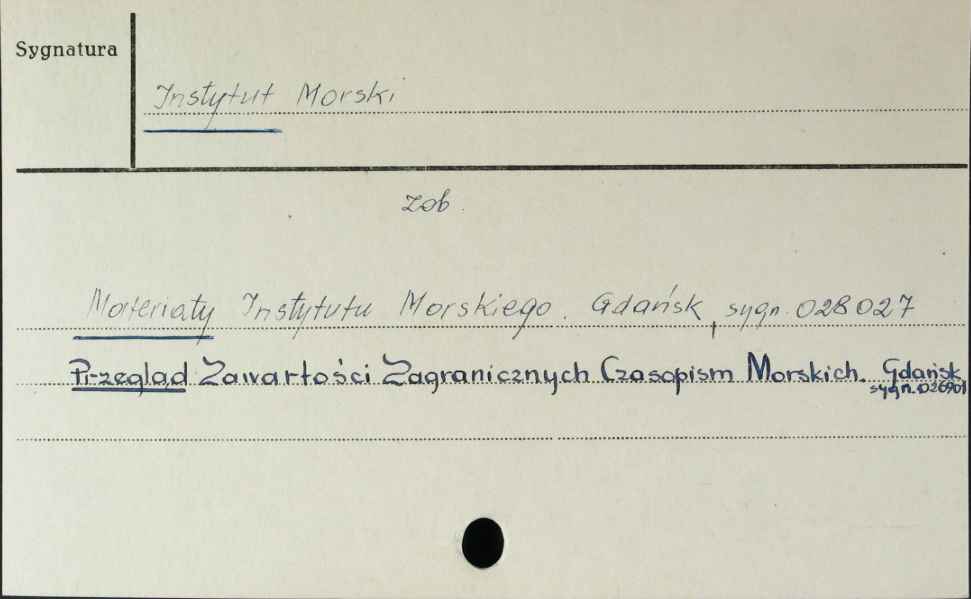 Sygnatura
Instytut Morski
zob.
Materiały Instytutu Morskiego. Gdańsk, sygn. 028027
Przegląd Zawartości Zagranicznych Czasopism Morskich. Gdańsk
sygn. 026901